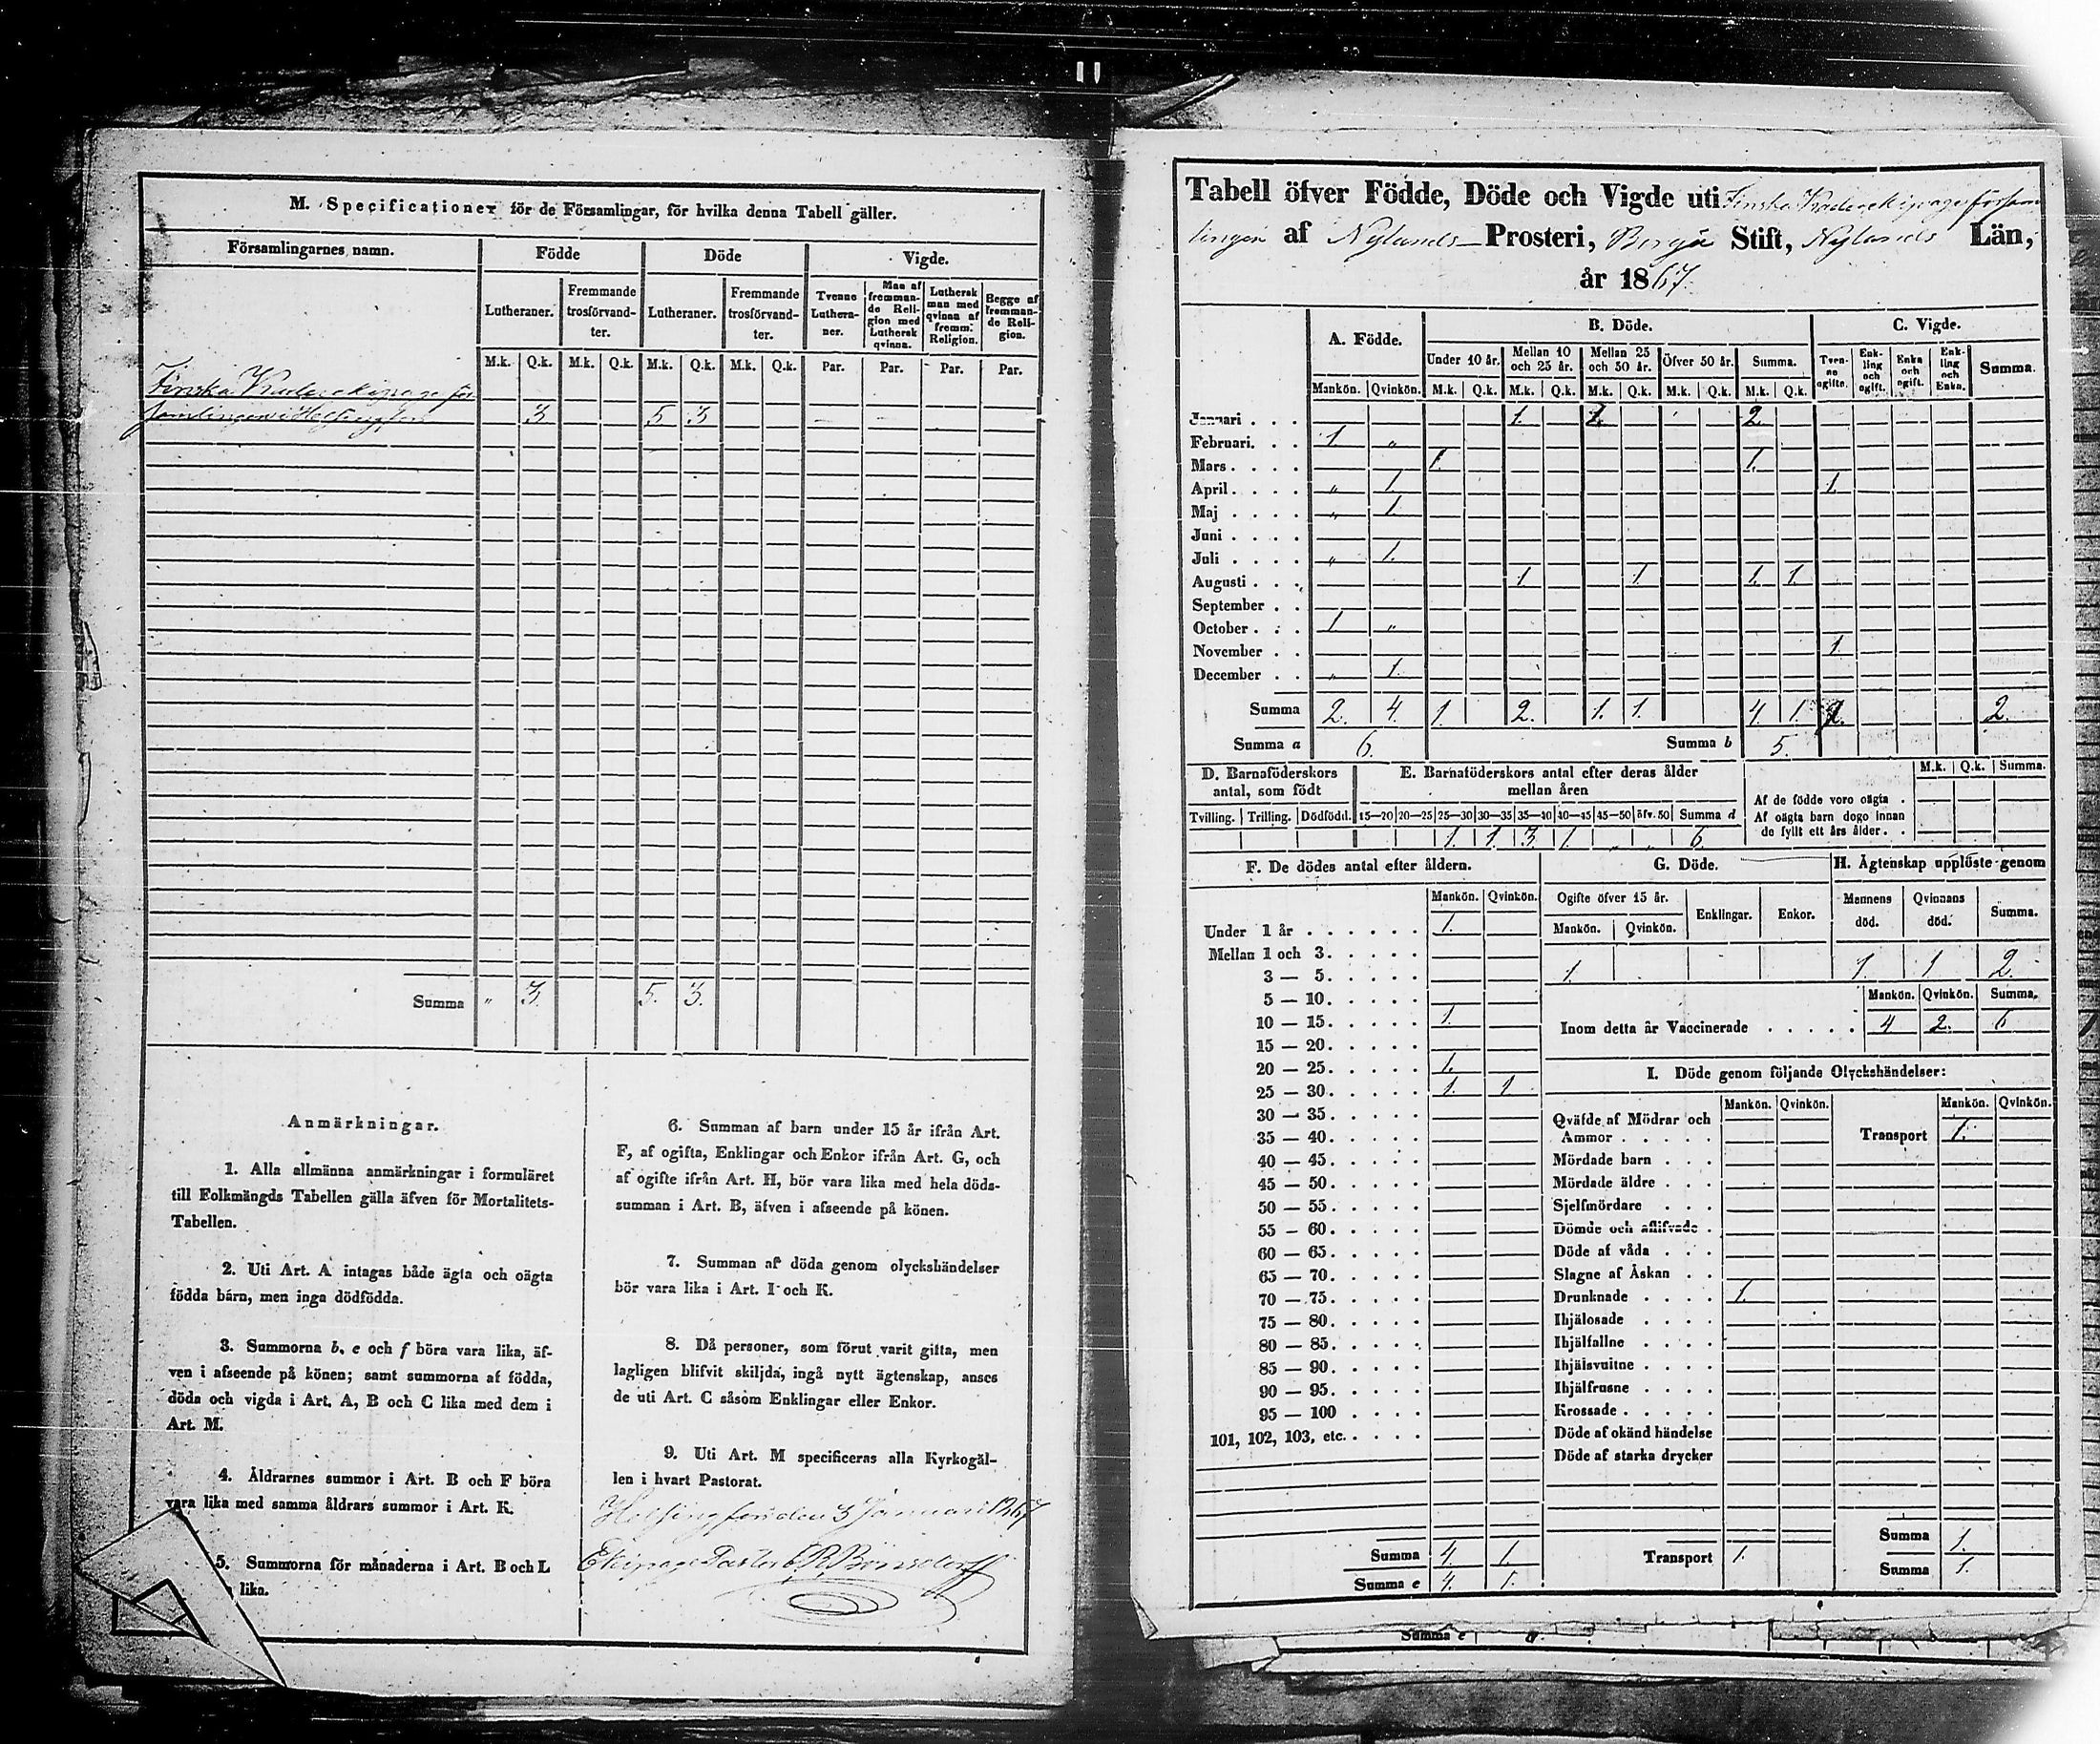 M. Specificationer för de Församlingar, för hvilka denna Tabell gäller.
Församlingarnes namn. Födde Döde Vigde.
Lutheraner. Fremmande trosförvandter. Lutheraner. Fremmande trosförvandter. Tvenne Lutheraner. Man af fremmande Religion med Luthersk qvinna. Luthersk man med qvinna af fremm: Religion. Begge af fremmande Religion.
M.k. Q.k. M.k. Q.k. M.k. Q.k. M.k. Q.k. Par. Par. Par. Par.
Finska Kadereckipage för
samlingen i Helsingfors 3 5 3 — —
Summa " 3. 5. 3.
Anmärkningar.
1. Alla allmänna anmärkningar i formuläret
till Folkmängds Tabellen gälla äfven för Mortalitets-
Tabellen.
2. Uti Art. A intagas både ägta och oägta
födda barn, men inga dödfödda.
3. Summorna b, e och f böra vara lika, äf-
ven i afseende på könen; samt summorna af födda,
döda och vigda i Art. A, B och C lika med dem i
Art. M.
4. Åldrarnes summor i Art. B och F böra
vara lika med samma åldrars summor i Art. K.
5. Summorna för månaderna i Art. B och L
lika.
6. Summan af barn under 15 år ifrån Art.
F, af ogifta, Enklingar och Enkor ifrån Art. G, och
af ogifte ifrån Art. H, bör vara lika med hela döds-
summan i Art. B, äfven i afseende på könen.
7. Summan af döda genom olyckshändelser
bör vara lika i Art. I och K.
8. Då personer, som förut varit gifta, men
lagligen blifvit skiljda, ingå nytt ägtenskap, anses
de uti Art. C såsom Enklingar eller Enkor.
9. Uti Art. M specificeras alla Kyrkogäl-
len i hvart Pastorat.
Helsingfors den 3 Januari 1867
Ekipage Pastor R. Bonsdorff
Tabell öfver Födde, Döde och Vigde uti Finska Kadereckipage försam
lingen af Nylands Prosteri, Borgå Stift, Nylands Län,
år 1867.
A. Födde. B. Döde. C. Vigde.
Under 10 år. Mellan 10 och 25 år. Mellan 25 och 50 år. Öfver 50 år. Summa. Tvenne ogifte. Enkling och ogift. Enka och ogift. Enkling och Enka. Summa.
Mankön. Qvinkön. M.k. Q.k. M.k. Q.k. M.k. Q.k. M.k. Q.k. M.k. Q.k.
Januari . . . 1. 1. 2.
Februari. . . 1 "
Mars . . . . 1. 1.
April . . . . " 1. 1.
Maj . . . . " 1.
Juni . . . .
Juli . . . . " 1.
Augusti . . . 1 1 1. 1.
September . .
October . . . 1. "
November . . 1.
December . . " 1.
Summa 2. 4. 1. 2. 1. 1. 4 1. 2. 2.
Summa a 6. Summa b 5.
D. Barnaföderskors antal, som födt
Tvilling. Trilling. Dödfödd.
E. Barnaföderskors antal efter deras ålder mellan åren
15—20 20—25 25—30 30—35 35—40 40—45 45—50 öfv. 50 Summa d
1. 1. 3. 1. 6.
M.k. Q.k. Summa.
Af de födde voro oägta .
Af oägta barn dogo innan
de fyllt ett års ålder . .
F. De dödes antal efter åldern.
Mankön. Qvinkön.
Under 1 år . . . . . . 1.
Mellan 1 och 3. . . . .
3 — 5. . . . .
5 — 10. . . . .
10 — 15. . . . . 1.
15 — 20. . . . .
20 — 25. . . . . 1.
25 — 30. . . . . 1. 1.
30 — 35. . . . .
35 — 40. . . . .
40 — 45. . . . .
45 — 50. . . . .
50 — 55. . . . .
55 — 60. . . . .
60 — 65. . . . .
65 — 70. . . . .
70 — 75. . . . .
75 — 80. . . . .
80 — 85. . . . .
85 — 90. . . . .
90 — 95. . . . .
95 — 100 . . . .
101, 102, 103, etc. . . . .
Summa 4. 1.
Summa e 4. 1.
G. Döde.
Ogifte öfver 15 år. Enklingar. Enkor.
Mankön. Qvinkön.
1.
H. Ägtenskap upplöste genom
Mannens död. Qvinnans död. Summa.
1. 1 2.
Mankön. Qvinkön. Summa.
Inom detta år Vaccinerade . . . . . 4 2. 6
I. Döde genom följande Olyckshändelser:
Mankön. Qvinkön. Mankön. Qvinkön.
Qväfde af Mödrar och
Ammor . . . . . Transport 1.
Mördade barn . . .
Mördade äldre . . .
Sjelfmördare . . .
Dömde och aflifvade .
Döde af våda . . .
Slagne af Åskan . .
Drunknade . . . . 1.
Ihjälosade . . . .
Ihjälfallne . . . .
Ihjälsvultne . . . .
Ihjälfrusne . . . .
Krossade . . . . .
Döde af okänd händelse
Döde af starka drycker
Summa 1.
Transport 1. Summa 1.
Summa e